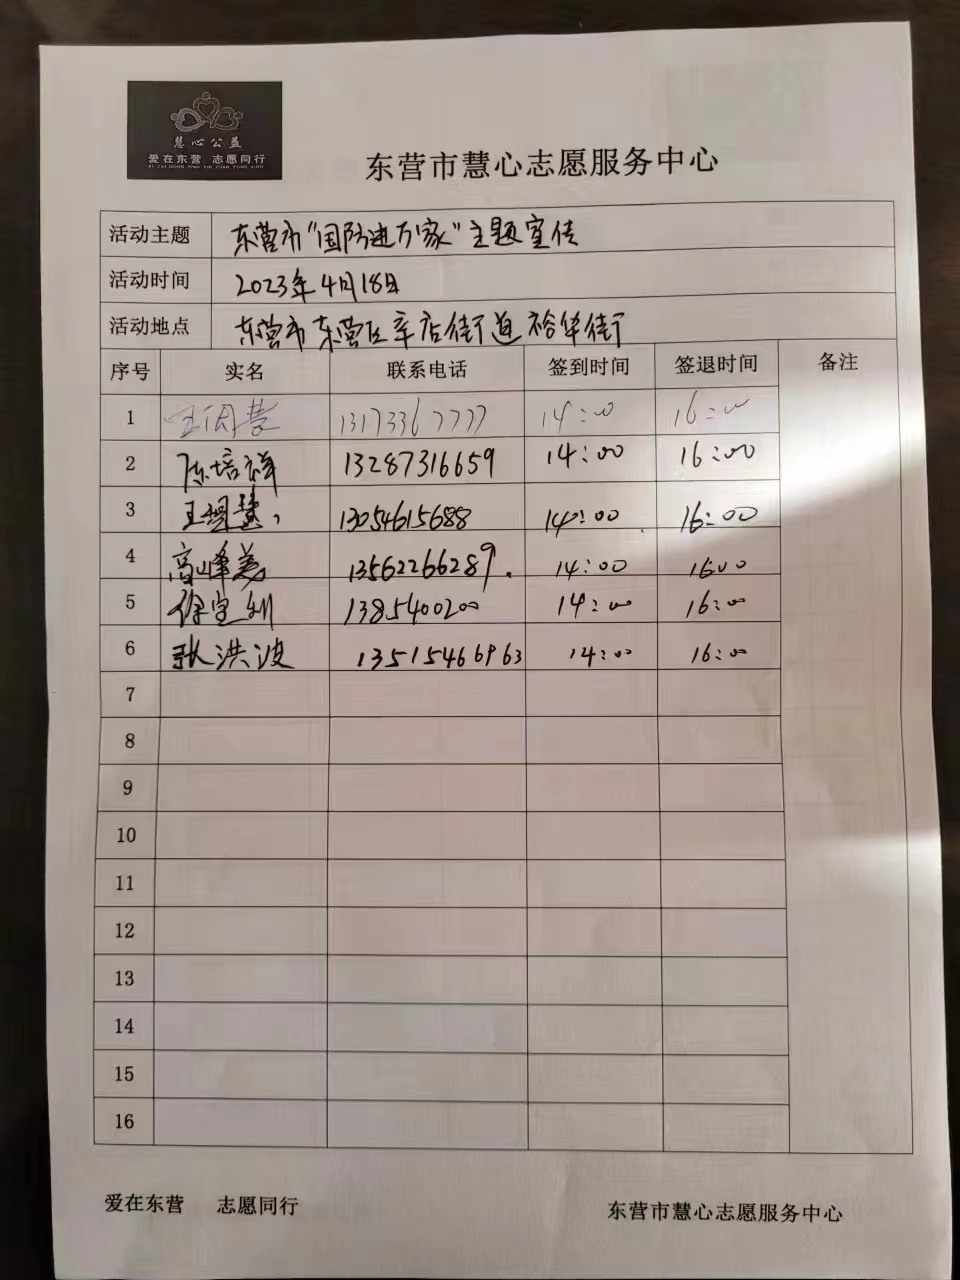 慧心公益
爱在东营 志愿同行
东营市慧心志愿服务中心
活动主题 东营市"国防进万家"主题宣传
活动时间 2023年4月18日
活动地点 东营市东营区辛店街道裕华街
序号 实名 联系电话 签到时间 签退时间 备注
1 13173367777 14:00 16:00
2 陈培祥 13287316659 14:00 16:00
3 13054615688 14:00 16:00
4 高峰美 13562266289. 14:00 16:00
5 1385400200 14:00 16:00
6 洪波 13515466963 14:00 16:00
7
8
9
10
11
12
13
14
15
16
爱在东营 志愿同行
东营市慧心志愿服务中心